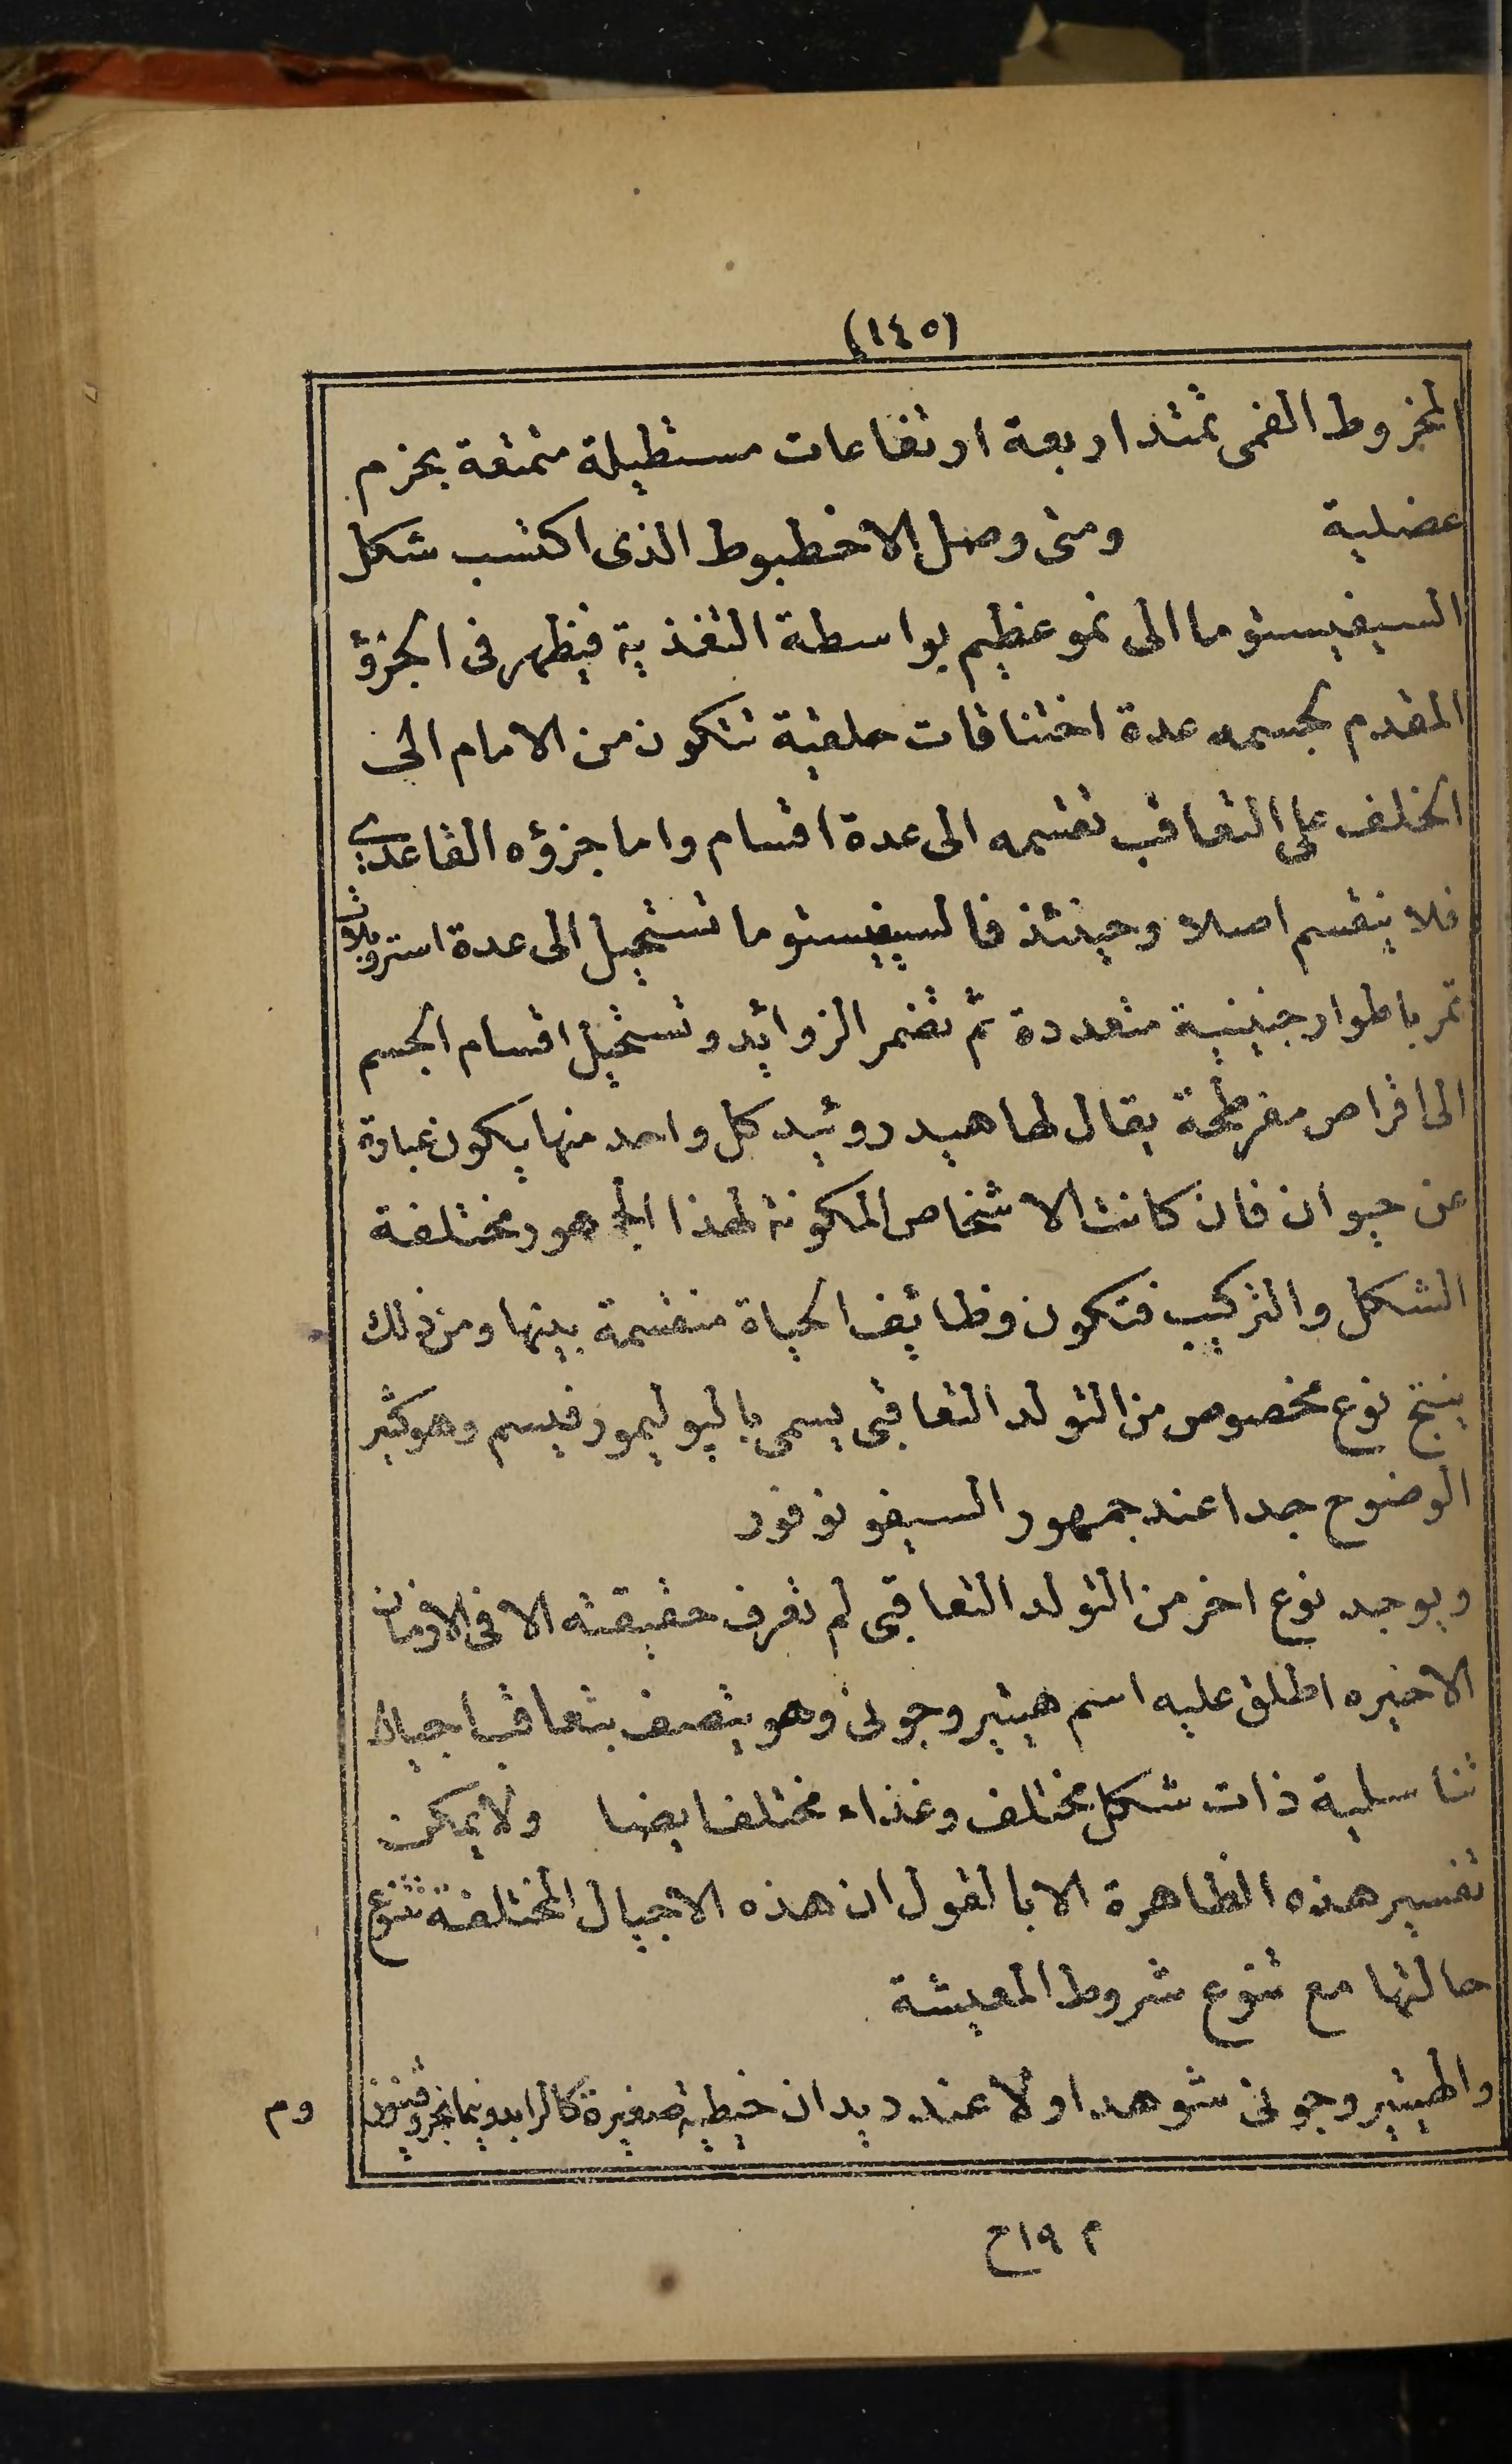 (١٤٥)
المخروط الفمى تمتد اربعة ارتفاعات مستطيلة متمتعة بحزم
عضلية ومتى وصل الاخطبوط الذى اكتسب شكل
السيفيستوما الى نمو عظيم بواسطة التغذية فيظهر فى الجزؤ
المقدم لجسمه عدة اختناقات حلقية تتكون من الامام الى
الخلف على التعاقب تقسمه الى عدة اقسام واما جزؤه القاعدى
فلا ينقسم اصلا وحينئذ فالسيفيستوما تستحيل الى عدة استروبلات
تمر باطوار جنينية متعددة ثم تضمر الزوايد وتستحيل اقسام الجسم
الى اقراص مفرطحة يقال لها هيدروئيد كل واحد منها يكون عبارة
عن حيوان فان كانت الاشخاص المكونة لهذا الجمهور مختلفة
الشكل والتركيب فتكون وظايف الحياة منقسمة بينها ومن ذلك
ينتج نوع مخصوص من التولد التعاقبى يسمى بالپوليمورفيسم وهو كثير
الوضوح جدا عند جمهور السيفونوفور
ويوجد نوع اخر من التولد التعاقبى لم تعرف حقيقته الا فى الازمان
الاخيره اطلق عليه اسم هيتيروجونى وهو يتصف بتعاقب اجيال
تناسلية ذات شكل مختلف وغذاء مختلف ايضا ولا يمكن
تفسير هذه الظاهرة الا بالقول ان هذه الاجيال المختلفة تتنوع
حالتها مع تنوع شروط المعيشة
والهيتيروجونى شوهد اولا عند ديدان خيطية صغيرة كالرابدونيما
وم
م ١٩ ح